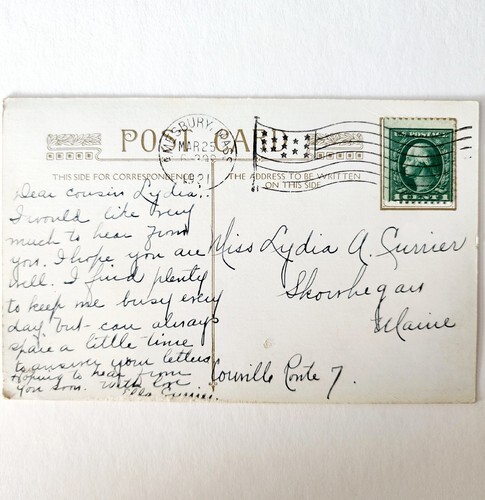 POST CARD
AMESBURY, MASS.
MAR 25
1921
U.S. POSTAGE
1 CENT 1
THIS SIDE FOR CORRESPONDENCE
THE ADDRESS TO BE WRITTEN
ON THIS SIDE
Dear cousin Lydia,
I would like very
much to hear from
you. I hope you are
well. I find plenty
to keep me busy every
day, but can always
spare a little time
to answer your letters
Hoping to hear from
you soon. With love
Currier.
Miss Lydia A. Currier
Skowhegan
Maine
Route 7.